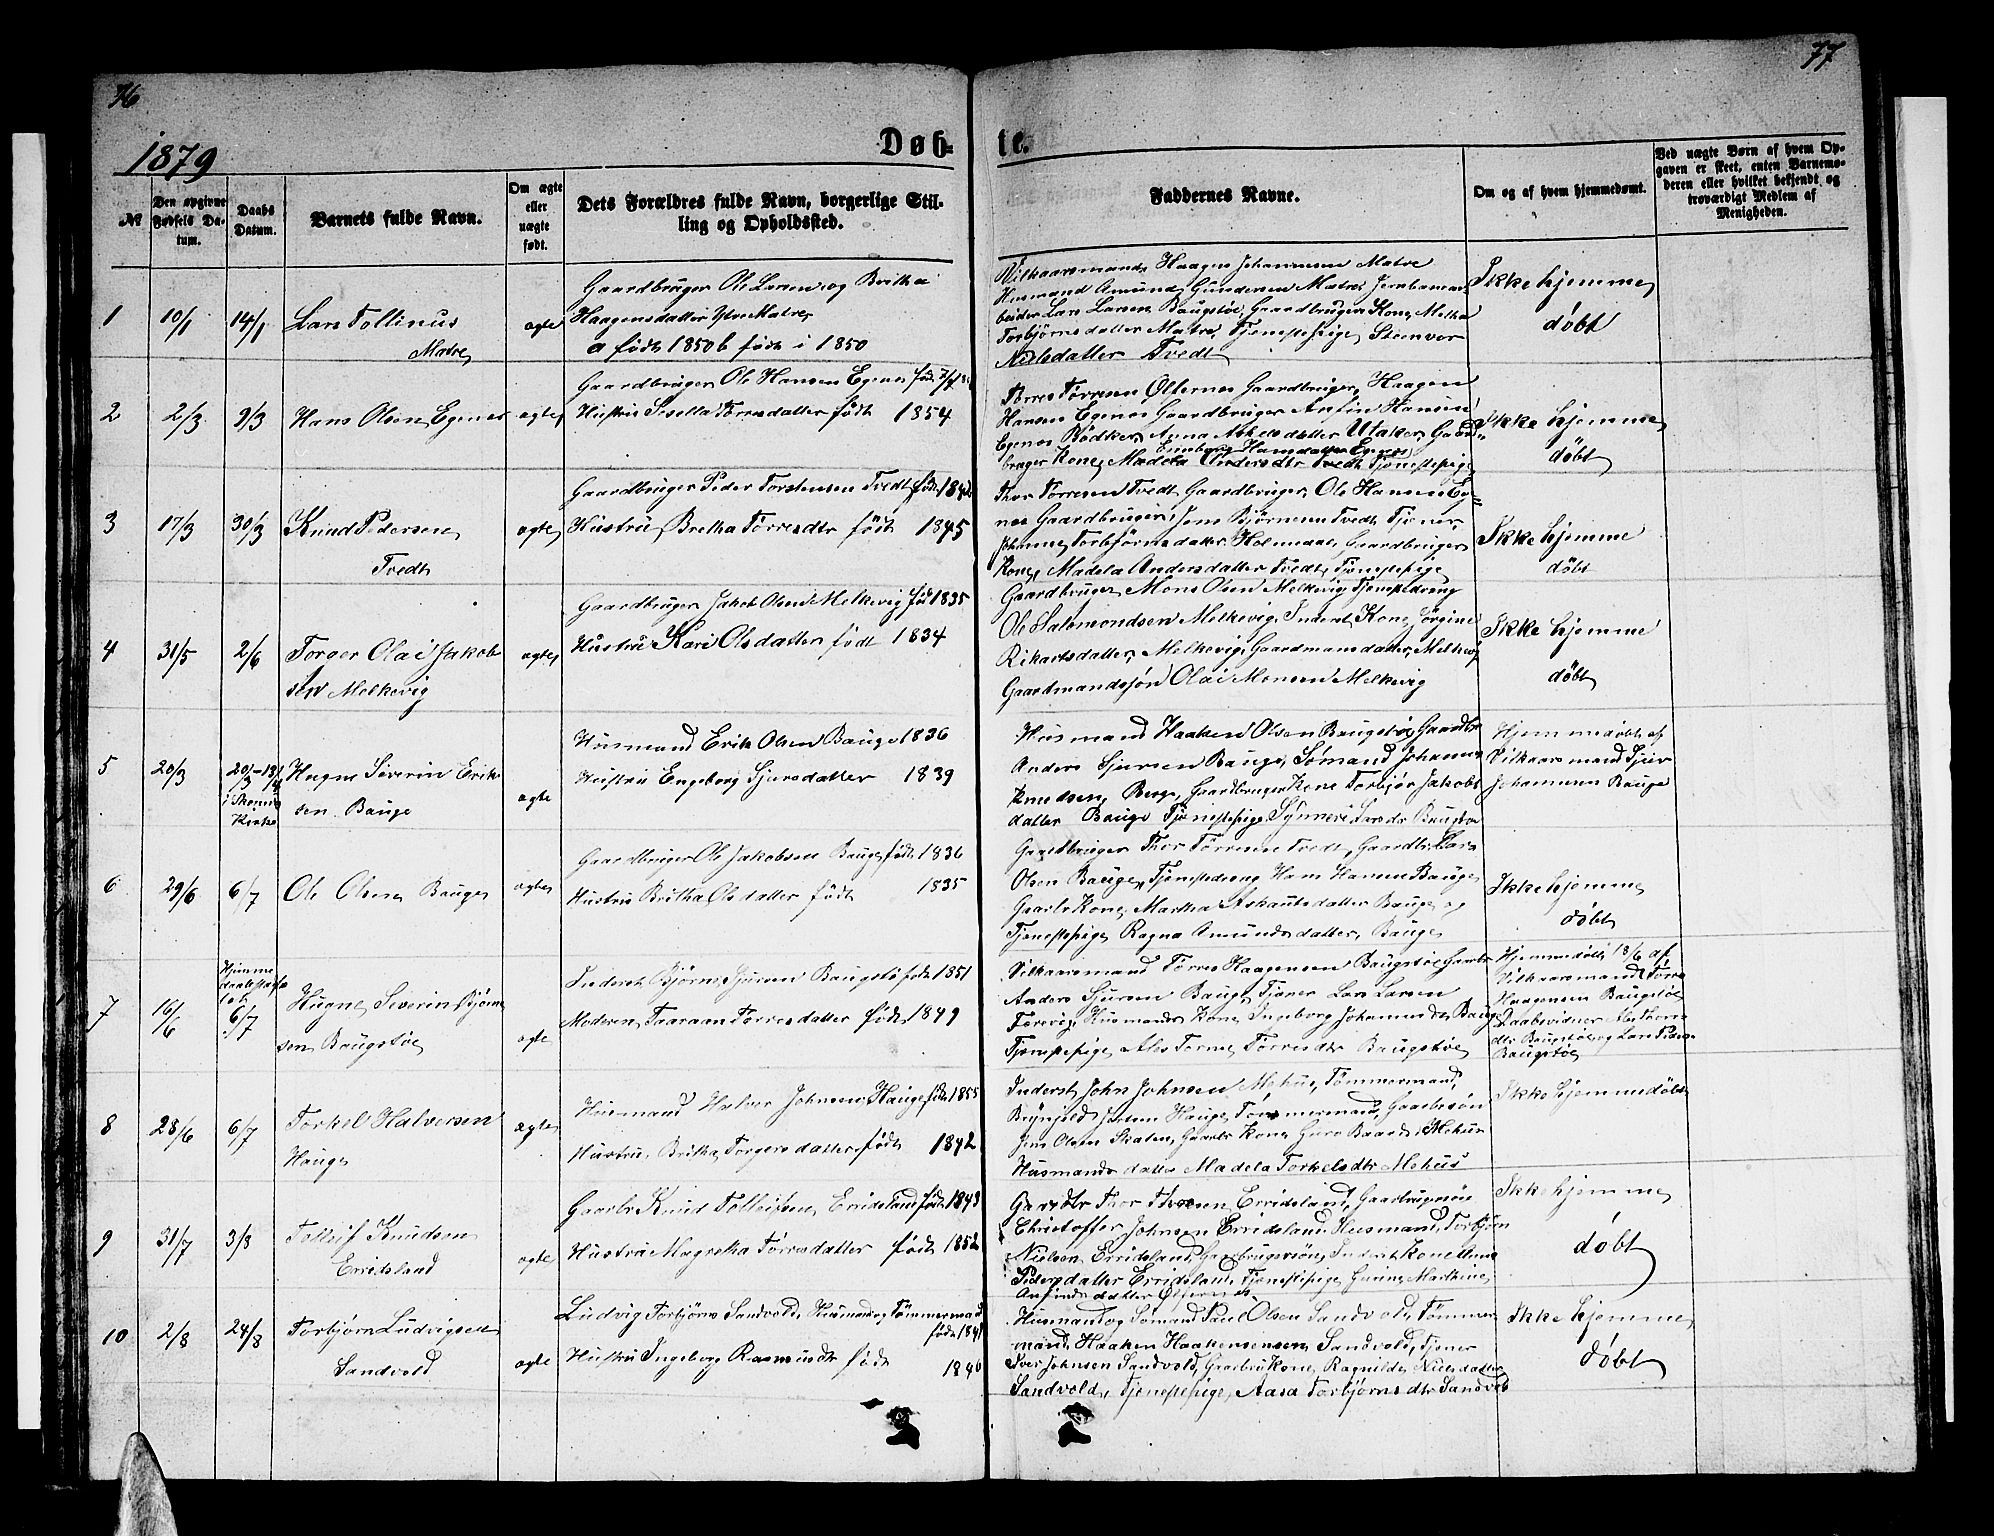 76
77
1879
Døb-
te.
№
Den opgivne Fødsels Datum.
Daabs Datum.
Barnets fulde Navn.
Om ægte eller uægte født.
Dets Forældres fulde Navn, borgerlige Stilling og Opholdssted.
Faddernes Navne.
Om og af hvem hjemmedømt.
Ved uægte Børn af hvem Opgaven er skeet, enten Barnemoderen eller hvilket bekjendt og troværdigt Medlem af Menigheden.
1 10/1 14/1 Lars Tollinus
Matre
ægte
Gaardbruger Ole Larsen og Britha
Haagensdatter Ytre Matre
a født 1850 b født i 1850
Vilkaarsmand Haagen Johannesen Matre
Husmand Amund Gundersen Matre Jernbanear-
beider Lars Larsen Baugstøe, Gaardbruger Kone, Metha
Torbjørnsdatter Matre, Tjenestepige Steenvor
Nilsdatter Tvedt
Ikke hjemme
døbt
2 2/3 9/3 Hans Olsen Egenes
ægte
Gaardbruger Ole Hansen Egenes
Hustru Sisella Tørresdatter født 1854
Tørres Tørresen Ølfernes Gaardbruger, Haagen
Hansen Egenes Gaardbruger Anfin Hansen
Egenes Bødker, Anna Askelsdatter Utaker, Gaard-
bruger Kone, Madela Andersdtr Tvedt Tjenestepige
Hansdatter Egenes
Ikke hjemme
døbt
3 17/3 30/3 Knud Pedersen
Tvedt
ægte
Gaardbruger Peder Torstensen Tvedt født 1842
Hustru Bretha Tørresdtr født 1845
Thor Tørresen Tvedt Gaardbruger, Ole Hansen Eg-
nes Gaardbruger, Jens Bjørnsen Tvedt Tjener,
Johanne Torbjørnsdatter Holmedal, Gaardbruger
Kone, Madela Andersdatter Tvedt, Tjenestepige
Ikke hjemme
døbt
4 31/5 2/6 Torger Olai Jakob
sen Melkevig
ægte
Gaardbruger Jakob Olsen Melkevig født 1835
Hustru Kari Olsdatter født 1834
Gaardbruger Mons Olsen Melkevig Tjenestedreng
Ole Salomondsen Melkevig, Inderst Kone Jørgine
Rikartsdatter, Melkevig, Gaardmansdatter, Melkevig
Gaardmandssøn Olai Monsen Melkevig
Ikke hjemme
døbt
5 20/3 20/3-13/4
i Skonevig Kirke
Hagne Siverin Erik-
sen Bauge
ægte
Husmand Erik Olsen Bauge 1836
Hustru Engeborg Sjursdatter 1839
Husmand Haaken Olsen Baugstøe, Gaardbr
Anders Sjursen Bauge, Sømand Johannes
Knudsen Berge, Gaardbruger Kone Torbjør Jakobs
datter Bauge Tjenestepige, Synneve Larsdtr Baugstøe
Hjemmedøbt af
Vilkaarsmand Sjur
Johannesen Bauge
6 29/6 6/7 Ole Olsen Bauge
ægte
Gaardbruger Ole Jakobsen Bauge født 1836
Hustru Britha Olsdatter født 1835
Gaardbruger Thor Tørresen Tvedt, Gaardbr Lars
Olsen Bauge, Tjenestedreng Hans Hansen Bauge
Gaarbr Kone, Martha Askautsdatter Bauge og
Tjenestepige Ragna Amundsdatter, Bauge
Ikke hjemme
døbt
7 16/6 Hjemme
6/7
Hagne Siverin Bjørn
sen Baugstøe
ægte
Inderst Bjørn Sjursen Baugstø født 1851
Moderen Taaraan Tørresdatter født 1849
Vilkaarsmand Tørres Haagensen Baugstøe, Gaarbr
Anders Sjursen Bauge, Tjener Lars Larsen
Torevig, Husmands Kone, Ingeborg Johannesdtr Bauge
Tjenestepige, Ales Torine Tørresdtr Baugstøe
Hjemmedøbt 18/6 af
Vilkaarsmand Tørres
Haagensen Baugstøe
Daabsvidner
dtr Baugstøe og Lars
Baugstøe
8 28/6 6/7 Torkel Halversen
Hauge
ægte
Husmand Halver Johnsen Hauge født 1855
Hustru, Britha Torgersdatter født 1842
Inderst John Johnsen Mehus, Tømmermand,
Brynjeld Hauge, Tømmermand, Gaarbrsøn
Jens Olsen Skalen, Gaarbr Kone, Guro Baardsdtr Mehus
Husmands datter Madela Torkelsdtr Mehus
Ikke hjemmedøbt
9 31/7 3/8 Tolleif Knudsen
Erridsland
ægte
Gaarbr Knud Tolleifsen Erridsland født 1843
Hustru Magretha Tørresdatter født 1852
Gaardbr Thor Erridsland, Gaarbrugersøn
Christoffer Johnsen Erridsland, Husmand, Torbjørn
Nielsen Erridsland, Gaarbrugersøn, Inderst Kone
Pedersdatter Erridsland, Tjenestepige, Marthine
Anfindsdatter Ølfernes
Ikke hjemme
døbt
10 2/8 24/8 Torbjørn Ludvigsen
Sandvold
ægte
Ludvig Torbjørns Sandvold, Husmand, Tømmermand
født 1841
Hustru Ingeborg Rasmusdtr født
Husmand og Sømand Paul Olsen Sandvold, Tømmer-
mand Haaken Haakensensen Sandvold, Tjener
Iver Johnsen Sandvold, Gaarbr Kone, Ragnilde Nilsdatter
Sandvold, Tjenestepige, Aasa Torbjørnsdtr Sandvold
Ikke hjemme
døbt